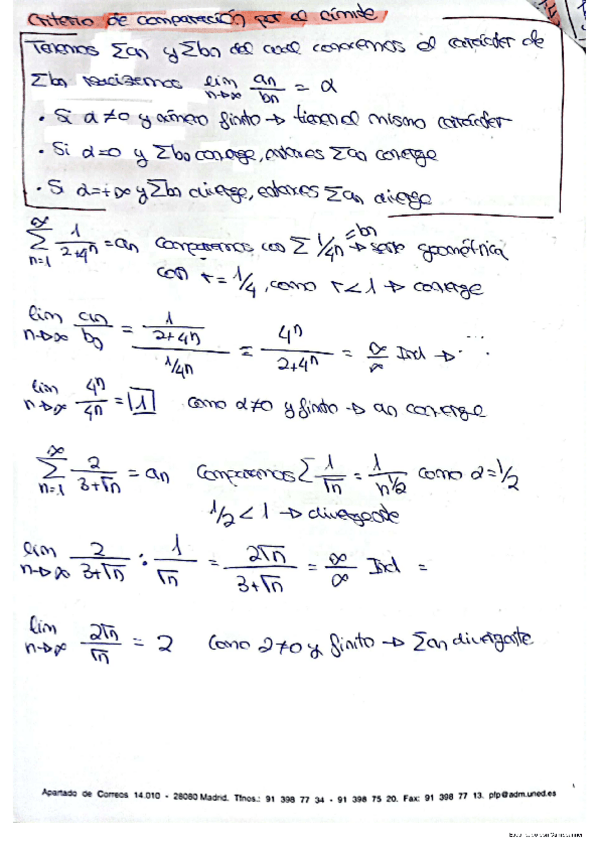 Criterio de comparación por el límite
Tenemos Σan y Σbn del cual conocemos el carácter de
Σbn realizamos lim n→∞ an/bn = α
• Si α ≠ 0 y número finito → tienen el mismo carácter
• Si α=0 y Σbn converge, entonces Σan converge
• Si α=+∞ y Σbn diverge, entonces Σan diverge
∞ Σ n=1 1/(2+4ⁿ) = an Comparemos con Σ 1/4ⁿ =bn → serie geométrica
con r = 1/4, como r<1 → converge
lim n→∞ an/bn = (1/(2+4ⁿ))/(1/4ⁿ) = 4ⁿ/(2+4ⁿ) = ∞/∞ Ind →
lim n→∞ 4ⁿ/4ⁿ = 1 como α≠0 y finito → an converge
∞ Σ n=1 2/(3+√n) = an Comparemos Σ 1/√n = 1/n^1/2 como α=1/2
1/2 < 1 → divergente
lim n→∞ 2/(3+√n) : 1/√n = 2√n/(3+√n) = ∞/∞ Ind =
lim n→∞ 2√n/√n = 2 como 2≠0 y finito → Σan divergente
Apartado de Correos 14.010 - 28080 Madrid. Tfnos.: 91 398 77 34 - 91 398 75 20. Fax: 91 398 77 13. pfp@adm.uned.es